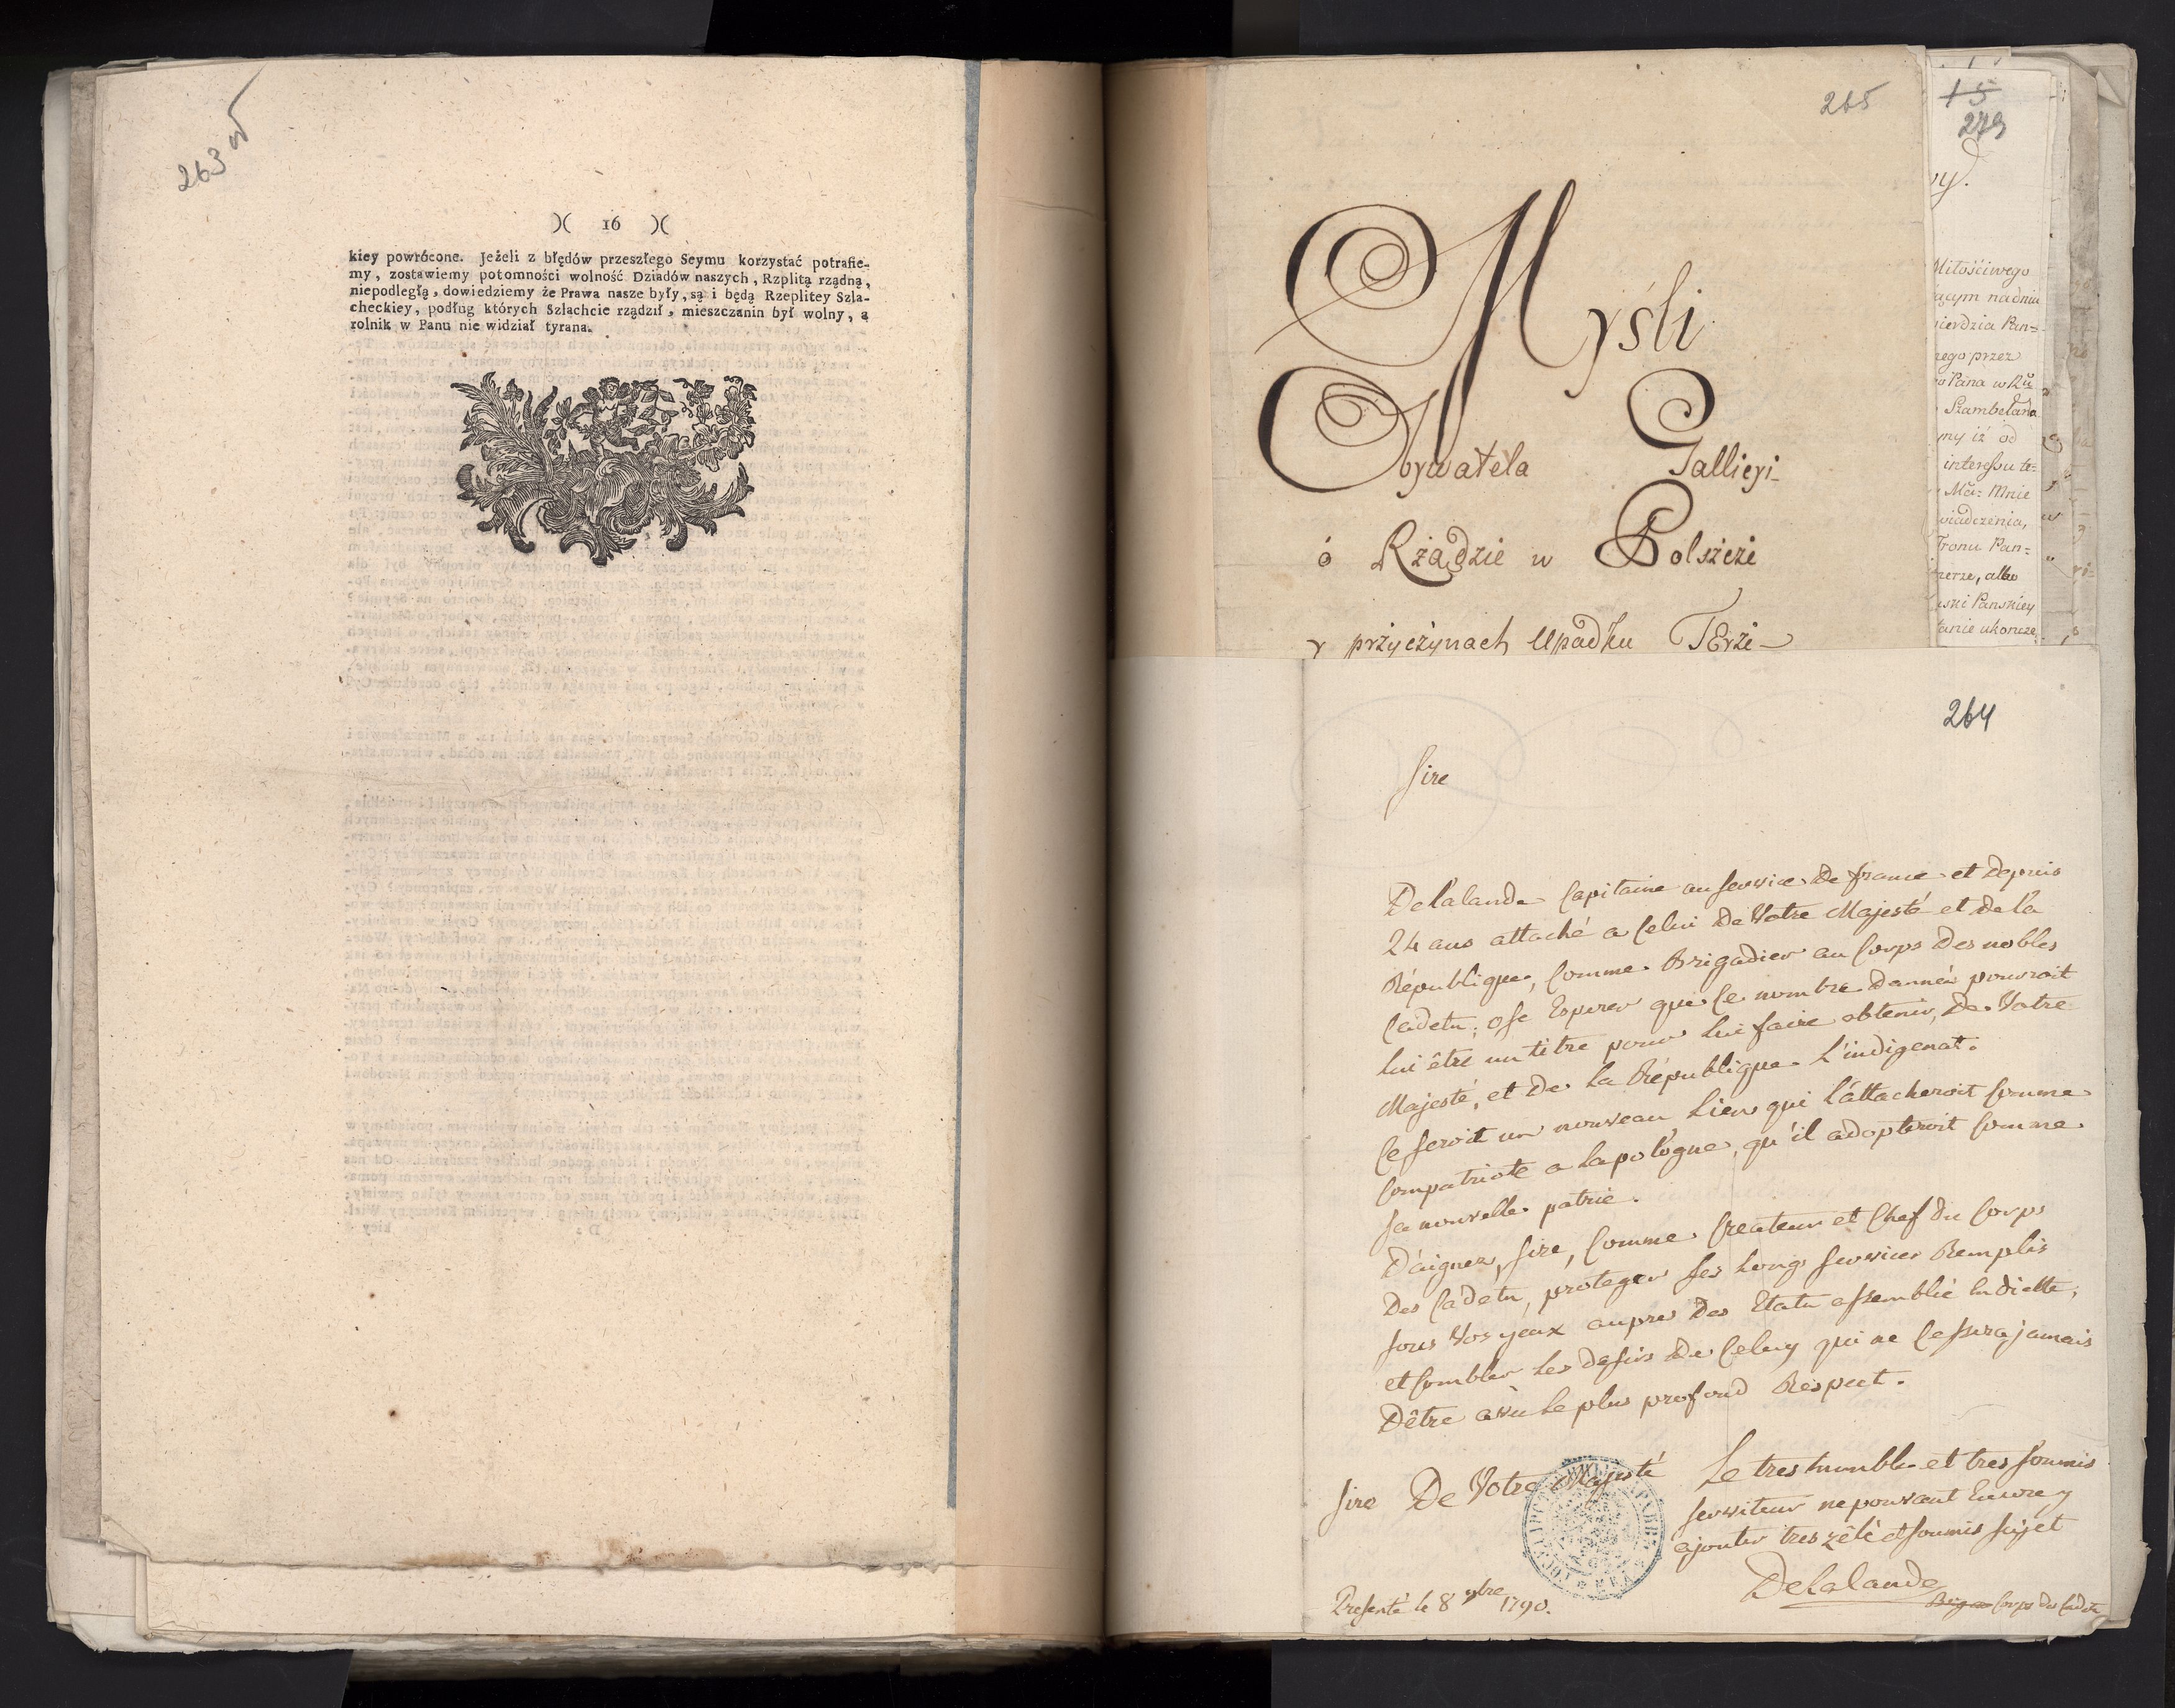 263v
)( 16 )(
kiey powrócone. Jeżeli z błędów przeszłego Seymu korzystać potrafie-
my, zostawiemy potomności wolność Dziadów naszych, Rzplitą rządną,
niepodległą, dowiedziemy że Prawa nasze były, są i będą Rzeplitey Szla-
checkiey, podług których Szlachcic rządził, mieszczanin był wolny, a
rolnik w Panu nie widział tyrana.
265
Myśli
Obywatela Galliçyi-
ó Rżądzie w Polszcże
y przyczynach Upadku TErże-
15
279
wy.
Miłościwego
ącym nadniu
ierdzia Pan=
nego przez
Pana w
Szambelana
my iż od
interessu te=
Mnie
wiadczenia,
Tronu Pan=
erze, albo
wski Panskiey
tanie ukoncze
264
Sire
Delalande Capitaine au service De france et Depuis
24 ans attaché a Celui De Votre Majesté et De la
République, Comme Brigadier au Corps Des nobles
Cadets; ose Esperer que Ce nombre dannée pouroit
lui être un titre pour lui faire obtenir, De Votre
Majesté, et De La République L'indigenat.
Ce seroit un nouveau Lien qui l'attacheroit Comme
Compatriote a la pologne, qu'il adopteroit Comme
sa nouvelle patrie.
Daignez, sire, Comme Createur et Chef du Corps
Des Cadets, proteger ses Longs services Remplis
sous Vos yeux aupres Des Etats assemblé En diette,
et Combler Les desirs De Celuy qui ne Cessera jamais
D'être avec Le plus profond Respect.
Sire De Votre Majesté
Le tres humble et tres soumis
serviteur ne pouvant Encore y
ajouter tres zêlé et soumis sujet
Delalande
Brig Corps des Cadets
Presenté le 8 9bre 1790.